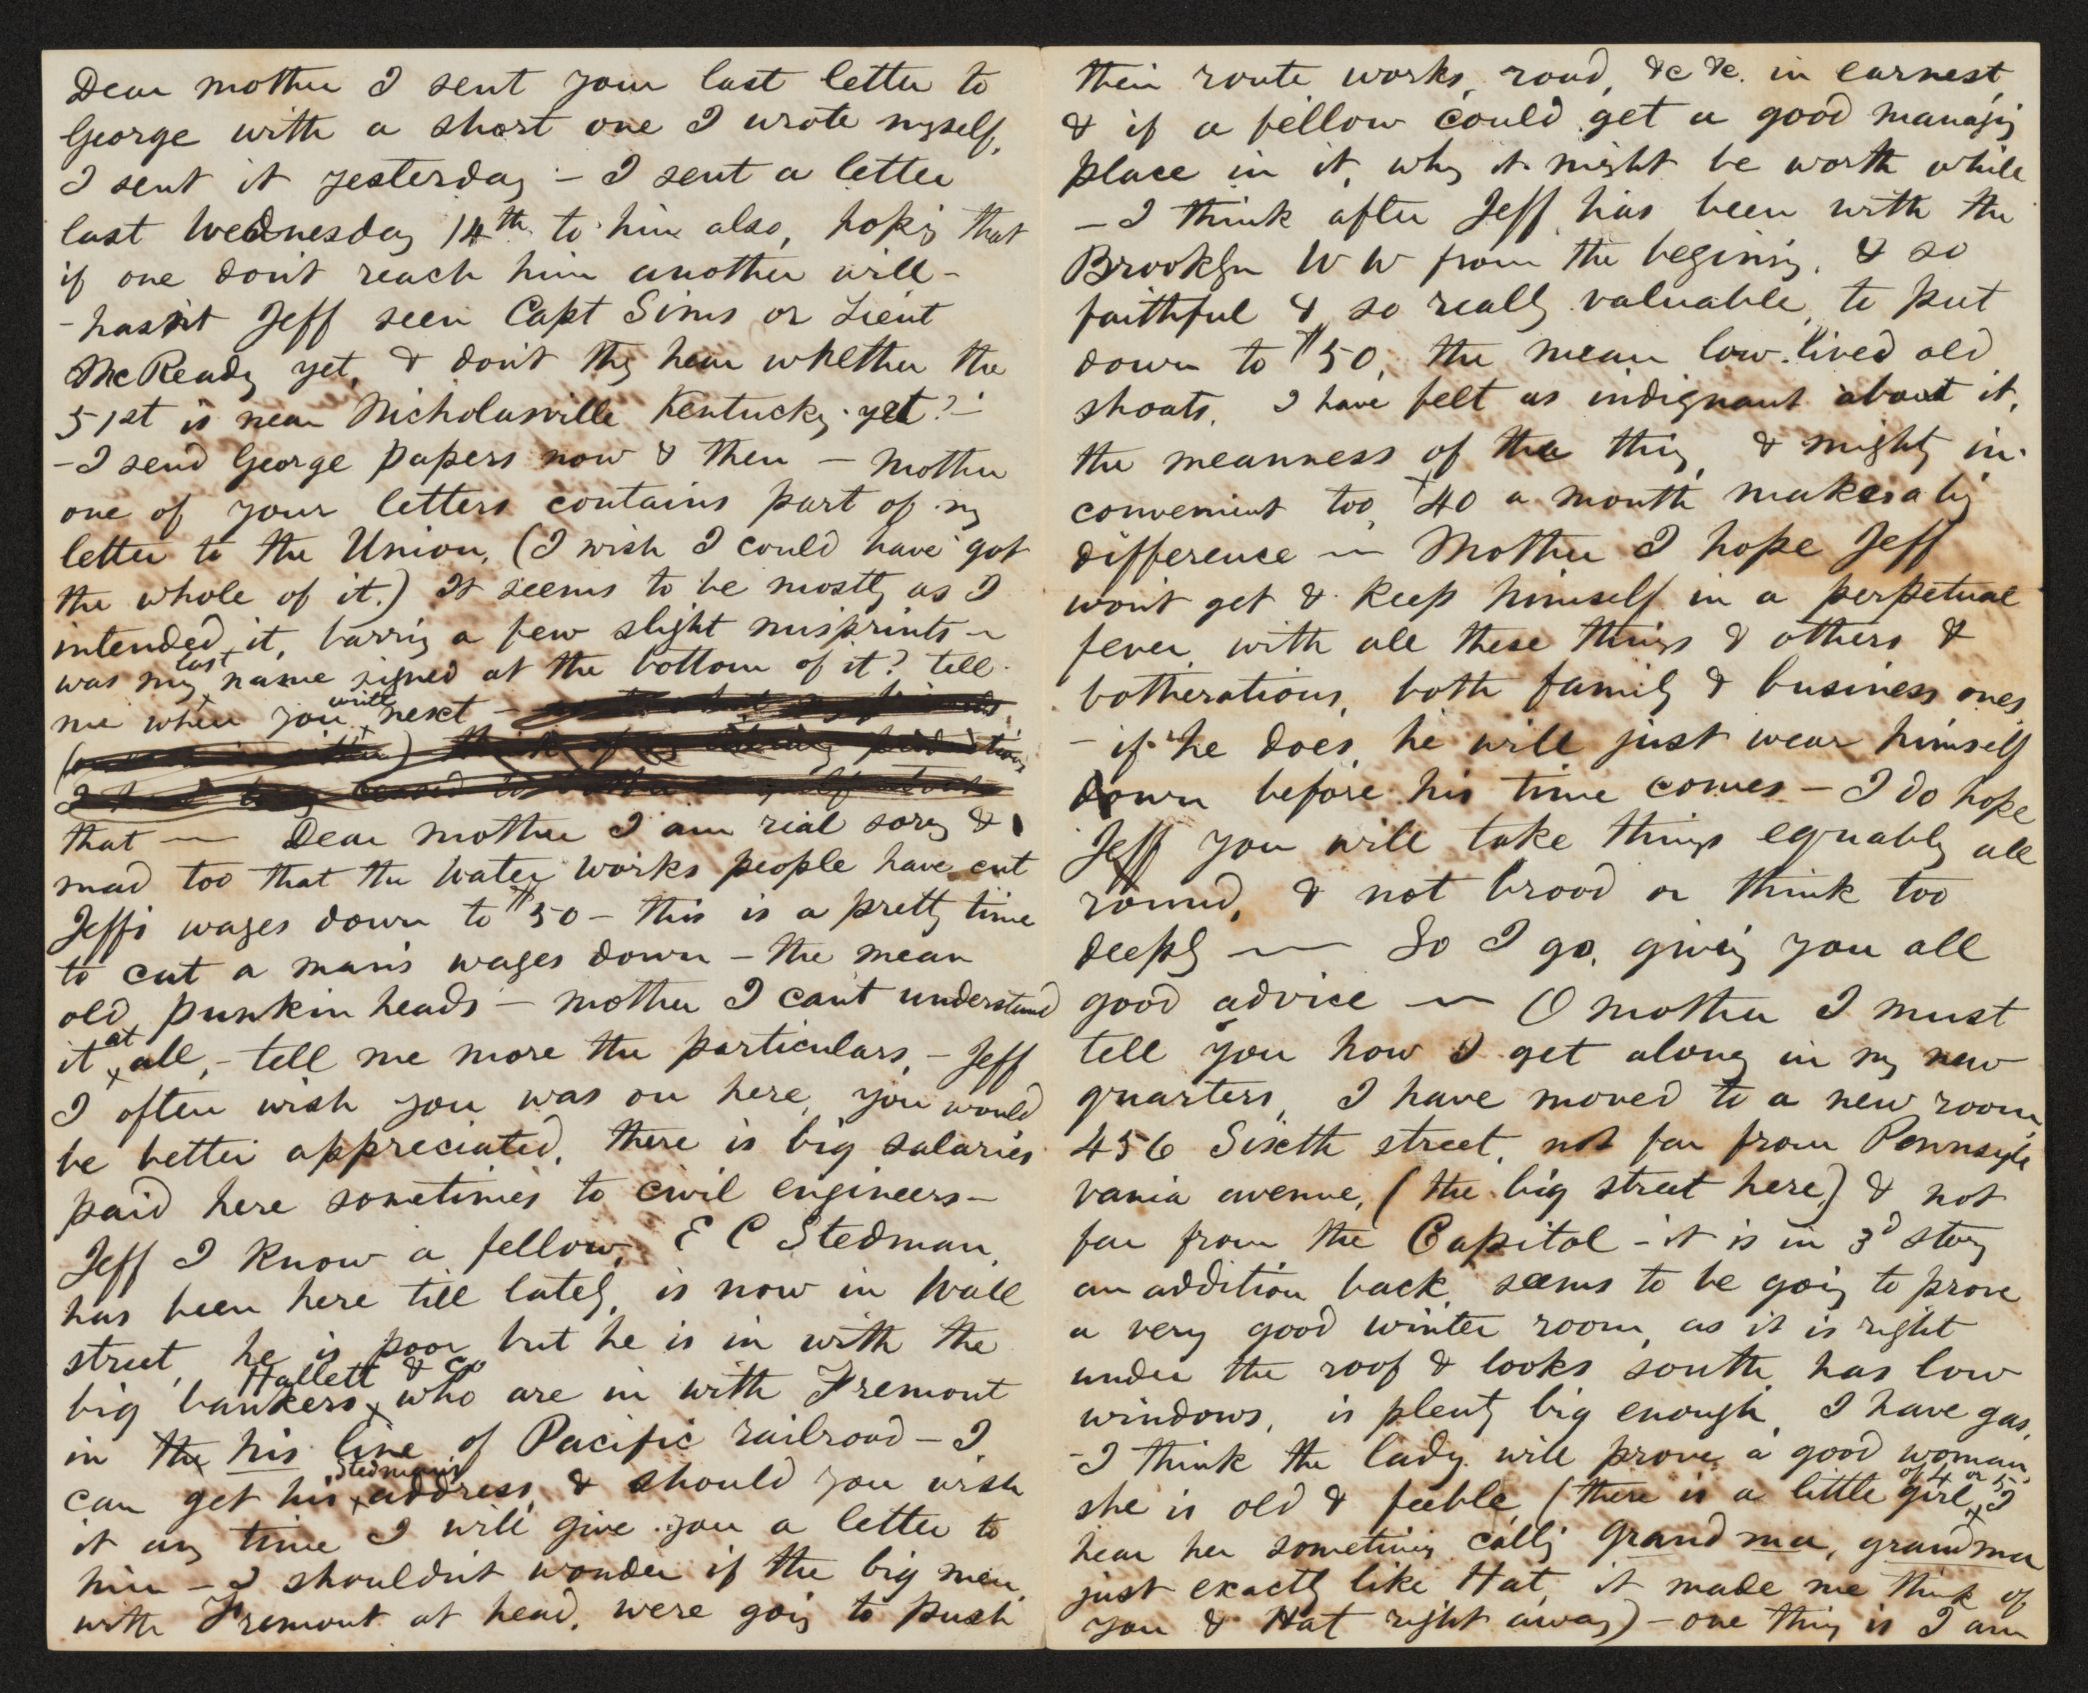 Dear mother I sent your last letter to
George with a short one I wrote myself,
I sent it yesterday – I sent a letter
last Wednesday 14th to him also, hoping that
if one don't reach him another will –
– hasn't Jeff seen Capt Sims or Lieut
McReady yet, & don't they hear whether the
51st is near Nicholasville Kentucky yet? –
– I send George papers now & then – Mother
one of your letters contains part of my
letter to the Union, (I wish I could have got
the whole of it.) It seems to be mostly as I
intended it, barring a few slight misprints –
was my last name signed at the bottom of it? tell
me when you write next –
think of my literary productions
I have long ceased to bother myself about
that — Dear mother I am real sorry &
mad too that the water works people have cut
Jeffs wages down to $50 – this is a pretty time
to cut a man's wages down – the mean
old punkin heads – mother I can't understand
it at all, – tell me more the particulars – Jeff
I often wish you was on here, you would
be better appreciated, there is big salaries
paid here sometimes to civil engineers –
Jeff I know a fellow, E C Stedman,
has been here till lately, is now in Wall
street, he is poor but he is in with the
big bankers Hallett & Co who are in with Fremont
in the his line of Pacific railroad – I
can get his Stedman's address, & should you wish
it any time I will give you a letter to
him – I shouldn't wonder if the big men,
with Fremont at head, were going to push
their route works, road, &c &c. in earnest,
& if a fellow could get a good managing
place in it, why it might be worth while
– I think after Jeff has been with the
Brooklyn W W from the begining, & so
faithful & so really valuable, to put
down to $50, the mean low-lived old
shoats. I have felt as indignant about it,
the meanness of the thing, & mighty in-
convenient too, $40 a month makes a big
difference — Mother I hope Jeff
wont get & keep himself in a perpetual
fever, with all these things & others &
botherations, both family & business ones
– if he does, he will just wear himself
down before his time comes – I do hope
Jeff you will take things equably all
round, & not brood or think too
deeply — So I go, giving you all
good advice — O mother I must
tell you how I get along in my new
quarters, I have moved to a new room,
456 Sixth street, not far from Pennsyl
vania avenue, (the big street here,) & not
far from the Capitol – it is in 3d story
an addition back, seems to be going to prove
a very good winter room, as it is right
under the roof & looks south, has low
windows, is plenty big enough, I have gas,
– I think the lady will prove a good woman,
she is old & feeble, (there is a little girl of 4 or 5, I
hear her sometimes calling grandma, grandma
just exactly like Hat, it made me think of
you & Hat right away) – one thing is I am